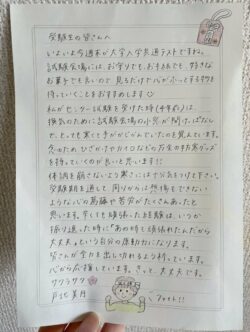 受験生の皆さんへ
いよいよ今週末が大学入学共通テストですね。
試験会場には、お守りでも、お手紙でも、好きな
お菓子でも良いので 見るだけで心がふっとする物を
持っていくことをおすすめします☺
私がセンター試験を受けた時(4年前)は、
換気のために試験会場の小窓が開けっぱなし
で、とっても寒くて手がかじかんでいたのを覚えています。
そのため ひざかけやカイロなどの万全の防寒グッズ
を持っていくのが良いと思います!!
体調を崩さないよう寒さには十分気をつけて下さい。
受験期を通して、周りからは想像もできない
ような心の葛藤や苦労がたくさんあったと
思います。辛くても頑張ったお経験は、いつか
振り返った時に「あの時も頑張れたんだから
大丈夫。」という自分の原動力になります。
皆さんが全力を出し切れるよう祈っています。
心から応援しています。きっと、大丈夫です。
サクラサク🌸
戸北美月
ファイト!!